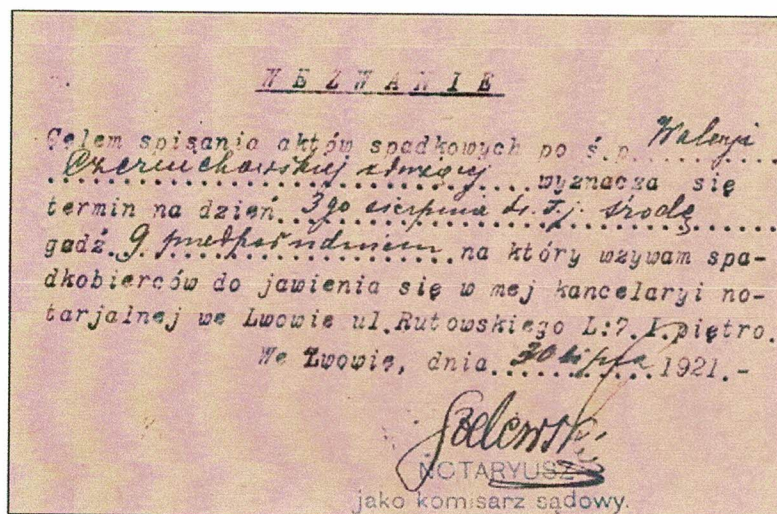 WEZWANIE
Celem spisania aktów spadkowych po ś.p. Waleryi
Czernichowskiej zmarłej wyznacza się
termin na dzień 3go sierpnia br. t.j. środę
godź. 9 przedpołudniem na który wzywam spa-
dkobierców do jawienia się w mej kancelaryi no-
tarjalnej we Lwowie ul.Rutowskiego L:7.I.piętro.
We Lwowie, dnia 30 lipca 1921.-
NOTARYUSZ
jako komisarz sądowy.